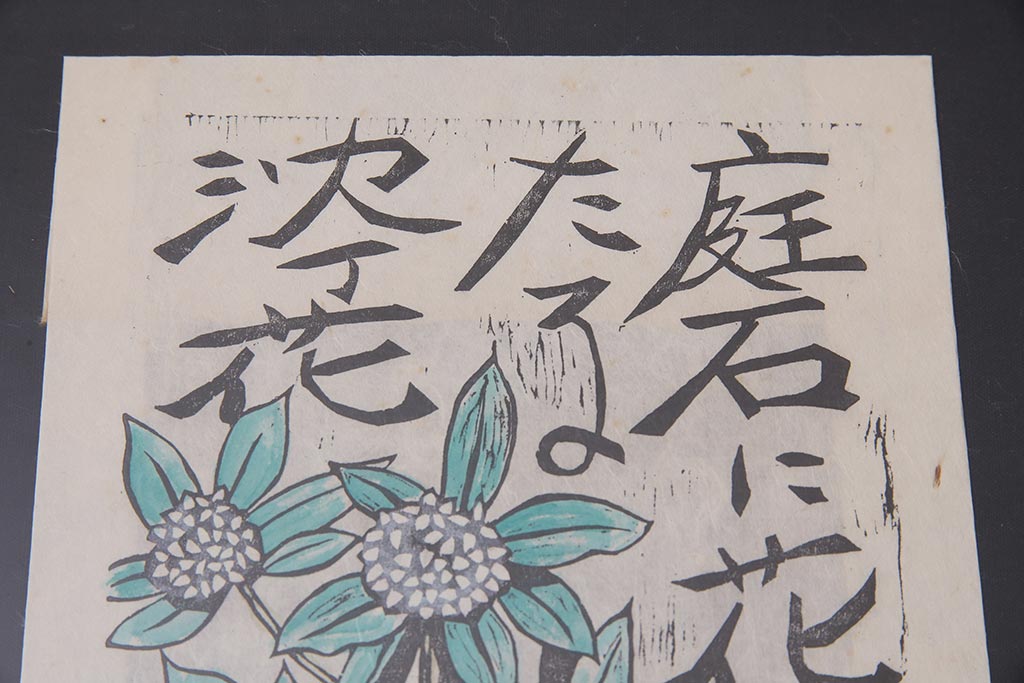 庭石に花
たる
沈丁花